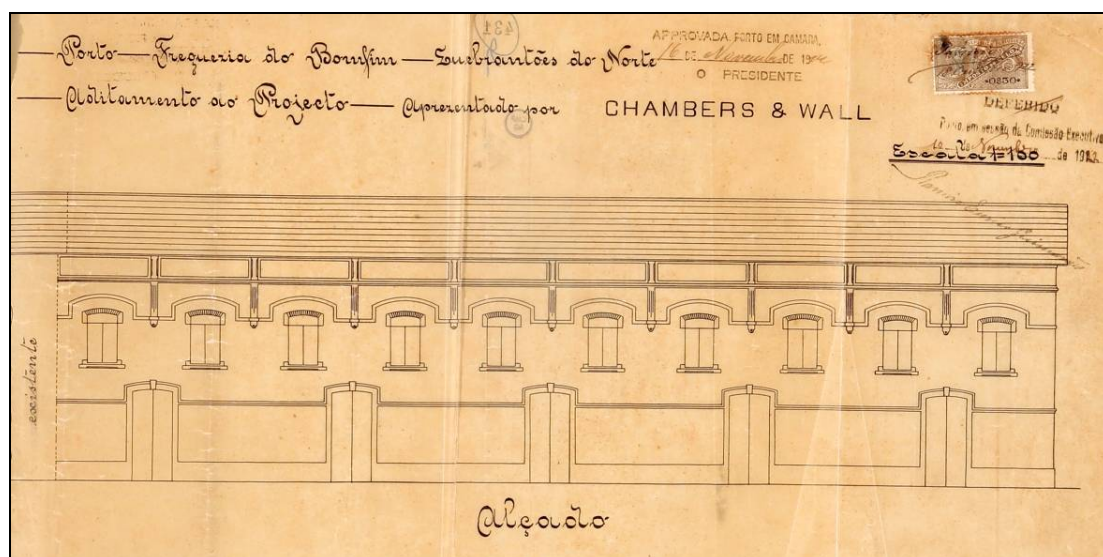 431
— Porto — Freguezia do Bomfim — Quebrantões do Norte
APPROVADA. PORTO EM CAMARA,
16 DE Novembro DE 19
O PRESIDENTE
— Aditamento ao Projecto — Aprezentado por CHAMBERS & WALL
0$50
DEFERIDO
Porto, em sessão da Comissão Executiva
16 de Novembro de 1922
Escala 1=100
existente
Alçado